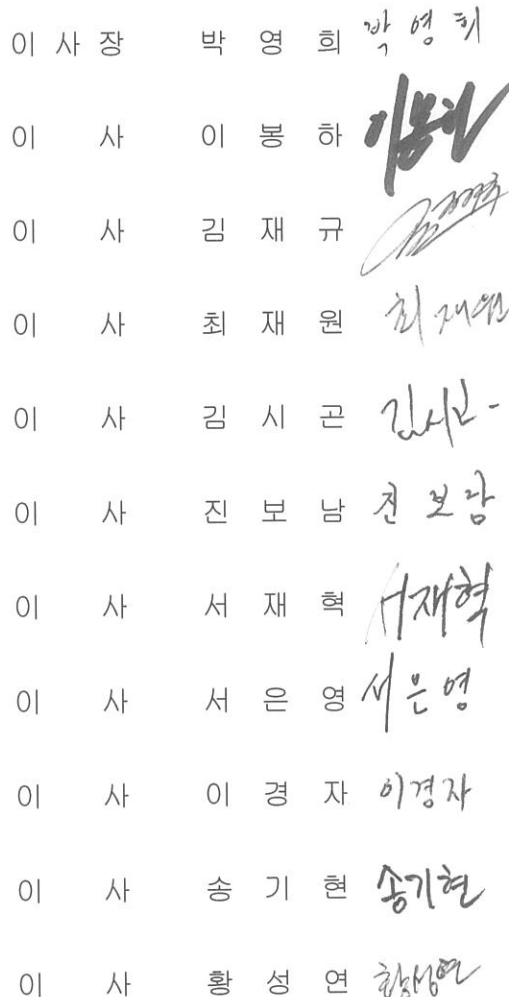 이 사 장 박 영 희 박영희
이 사 이 봉 하 이봉하
이 사 김 재 규 김재규
이 사 최 재 원 최재원
이 사 김 시 곤 김시곤
이 사 진 보 남 진보남
이 사 서 재 혁 서재혁
이 사 서 은 영 서은영
이 사 이 경 자 이경자
이 사 송 기 현 송기현
이 사 황 성 연 황성연